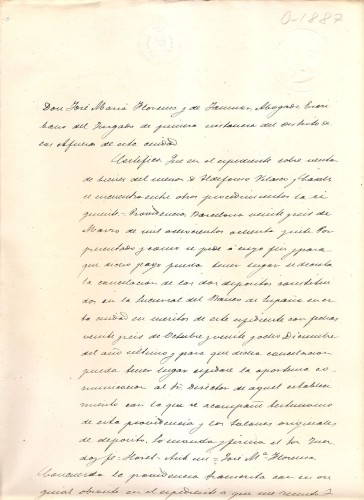 0-1887
Don José María Florensa y de Abogado Escri-
bano del Juzgado de primera instancia del distrito de
las Afueras de esta ciudad
Certifico: Que en el expediente sobre venta
de bienes del menor D. Ildefonso
se encuentra entre otros procedimientos la si-
guiente = Providencia Barcelona veinte y seis de
Marzo de mil ochocientos ochenta y siete Por
presentado y como se pide á cuyo fin y para
que dicho pago pueda tener lugar se decreta
la cancelacion de los dos depósitos constitui-
dos en la Sucursal del Banco de España en es-
ta ciudad en méritos de este espediente con fechas
veinte y seis de Octubre y veinte y ocho Diciembre
del año último y para que dicha cancelacion
pueda tener lugar espídase la oportuna co-
municacion al Sr Director de aquel estableci-
miento con la que se acompañe testimonio
de esta providencia y los talones originales
de depósito. Lo manda y firma el Sor Juez
doy fe = = Ante mi = José Mª Florensa
Concuerda la providencia transcrita con su ori-
ginal obrante en el espediente á que me remito. Y